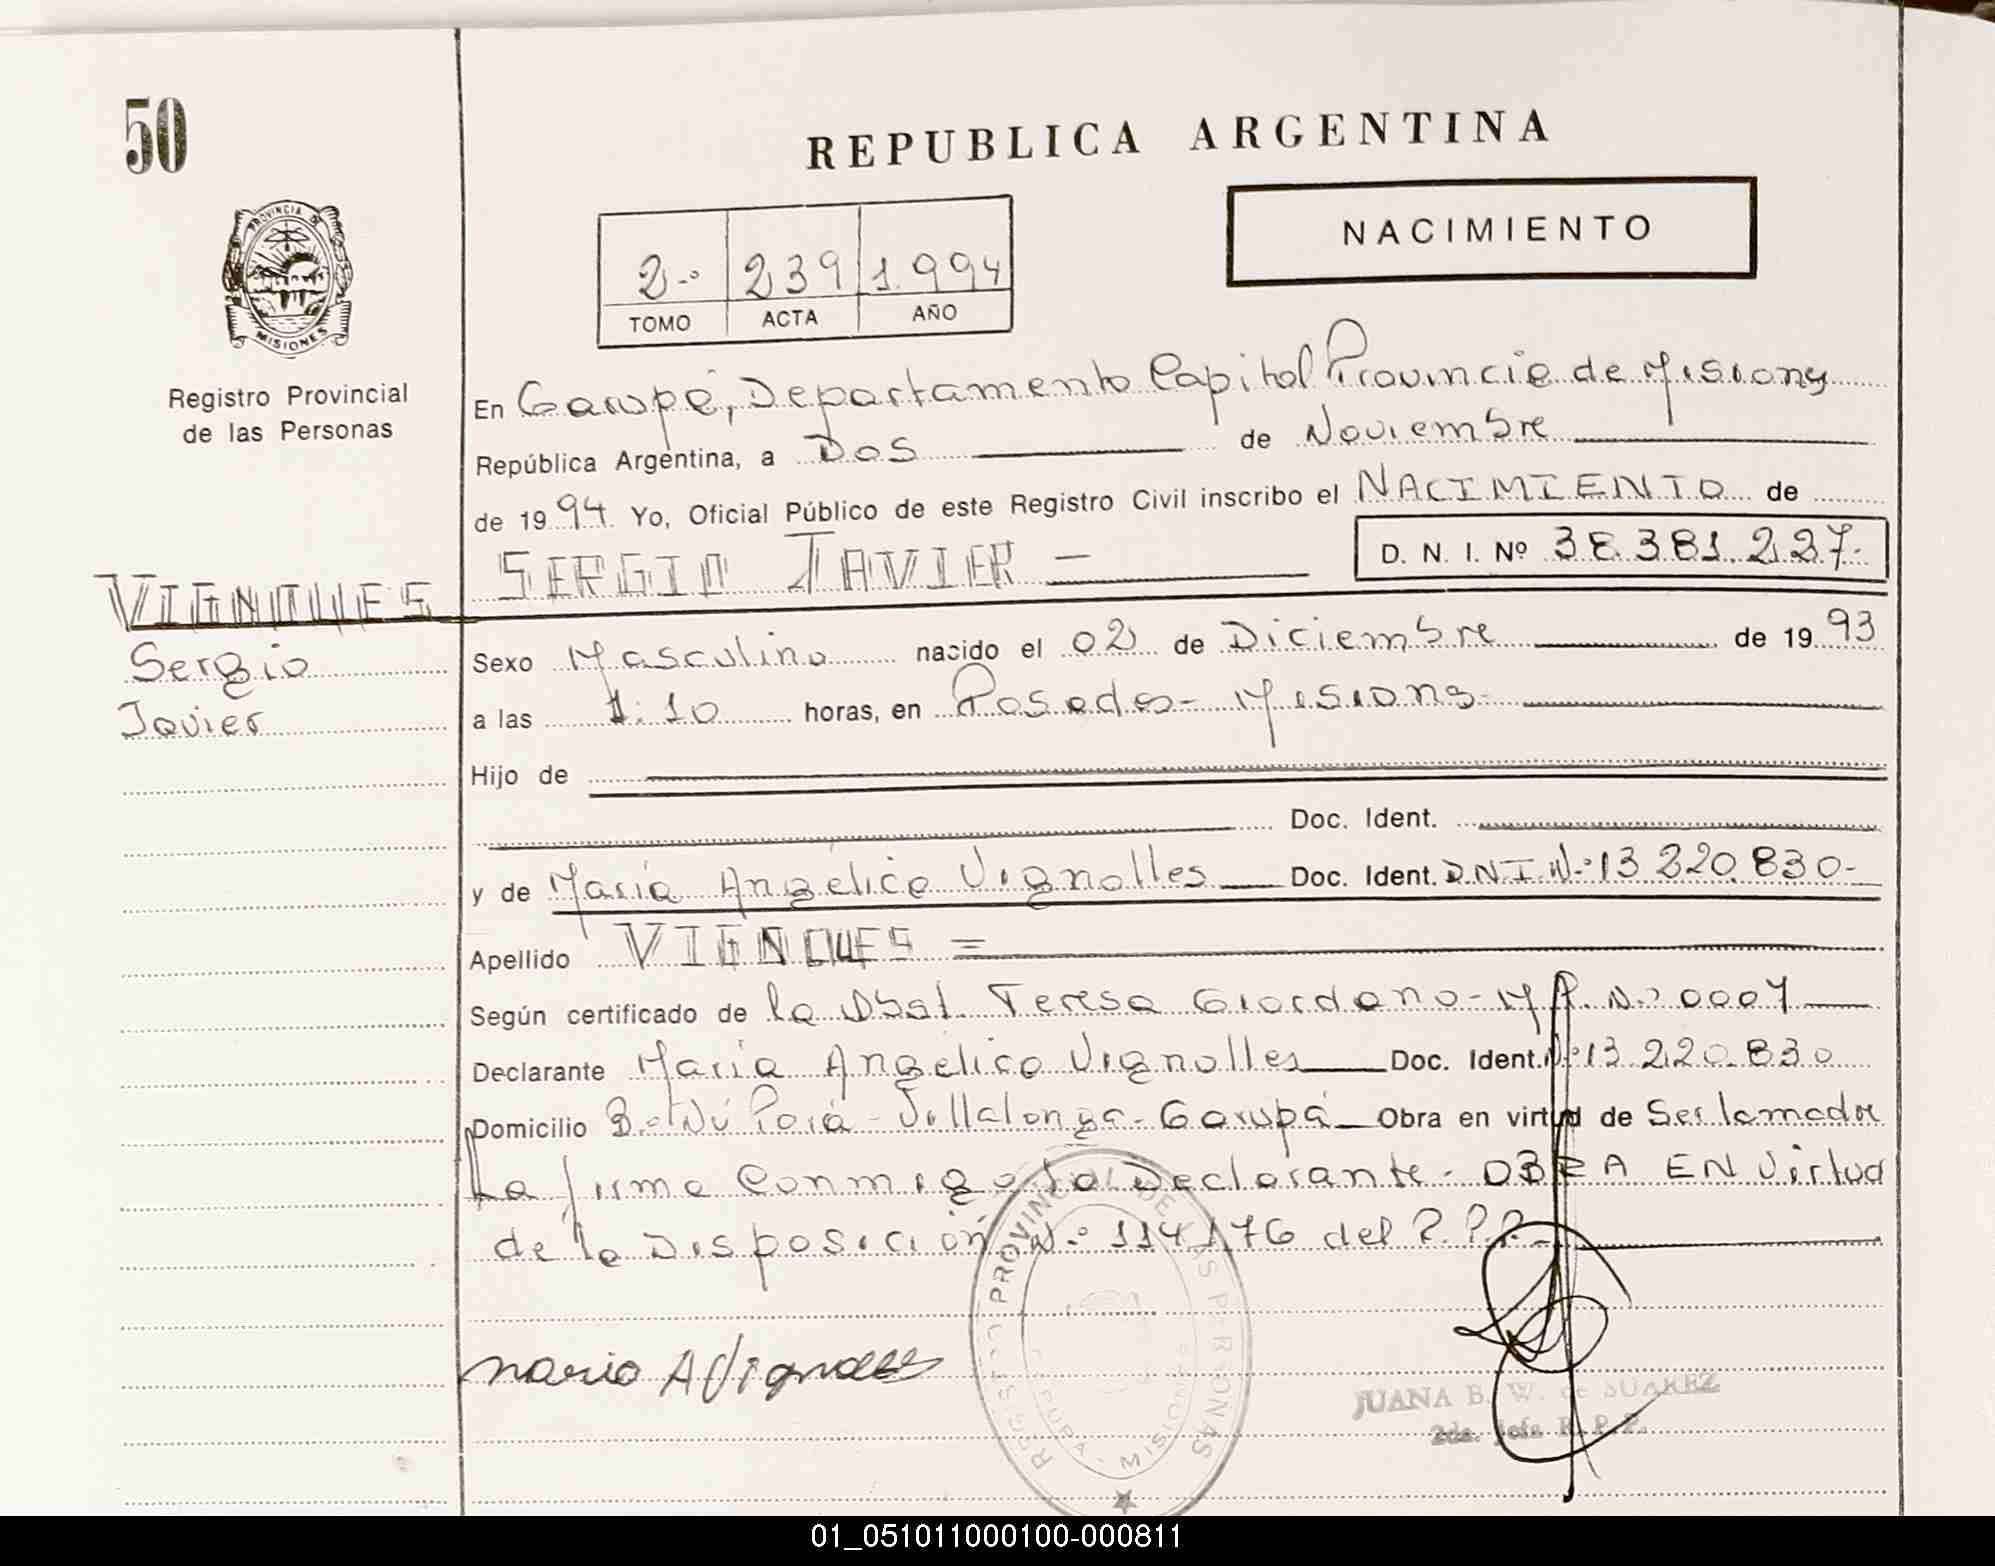 50
REPUBLICA ARGENTINA
NACIMIENTO
2-º 239 1.994
TOMO ACTA AÑO
PROVINCIA DE
MISIONES
Registro Provincial
de las Personas
En Garupá, Departamento Capital Provincia de Misiones
República Argentina, a Dos de Noviembre
de 1994. Yo, Oficial Público de este Registro Civil inscribo el NACIMIENTO de
SERGIO JAVIER - D. N. I. Nº 38.381.227.-
VIGNOLLES
Sergio
Javier
Sexo Masculino nacido el 02 de Diciembre de 1993
a las 1:10 horas, en Posadas - Misiones.-
Hijo de
Doc. Ident.
y de María Angélica Vignolles Doc. Ident. D.N.I.Nº 13.220.830-
Apellido VIGNOLLES =
Según certificado de la Obst. Teresa Giordano - M.P. Nº 0007
Declarante María Angélica Vignolles Doc. Ident. Nº 13.220.830
Domicilio Bº Ñú Porá - Villalonga - Garupá Obra en virtud de Ser la madre
La firma Conmigo la Declarante - OBRA EN Virtud
de la Disposición Nº 114176 del R.P.P.-
Maria A Vignolles
REGISTRO PROVINCIAL DE LAS PERSONAS
MISIONES
JUANA B. W. de SUAREZ
2da. Jefa R. P. P.
01_051011000100-000811